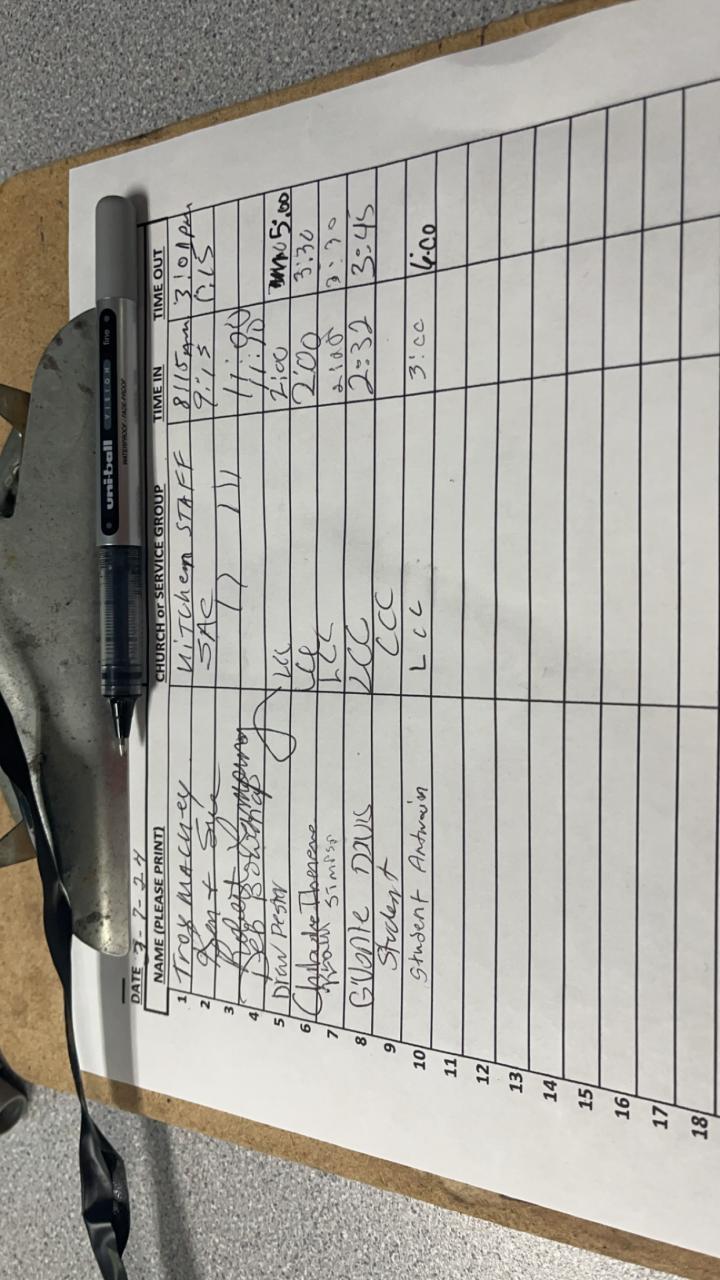 uni-ball VISION fine
WATERPROOF/FADE-PROOF
DATE 7-7-24
NAME (PLEASE PRINT) CHURCH or SERVICE GROUP TIME IN TIME OUT
1 Troy MACKEY KITCHEN STAFF 8:15 am 3:01pm
2 SAC 9:15 1:15
3 Robert 11:00
4 Deb 11:00
5 Drew LCC 2:00 5:00
6 LCC 2:00 3:30
7 LCC 2:00 3:30
8 LCC 2:32 3:45
9 Student CCC
10 Student Antwain LCC 3:00 4:00
11
12
13
14
15
16
17
18